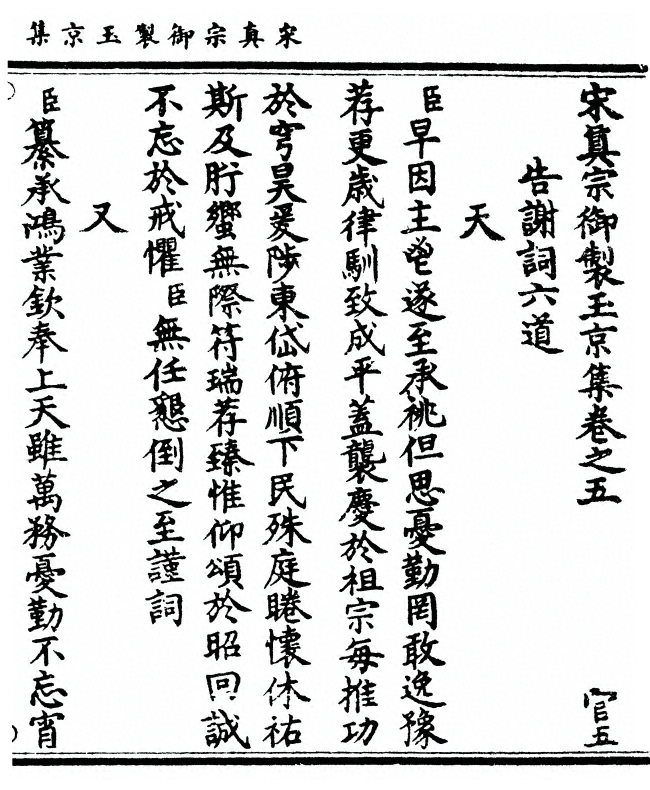 宋真宗御製玉京集
宋真宗御製玉京集卷之五 官五
告謝詞六道
天
臣早因主鬯遂至承祧但思憂勤罔敢逸豫
荐更歲律馴致成平蓋襲慶於祖宗每推功
於穹昊爰陟東岱俯順下民殊庭睠懷休祐
斯及肸蠁無際符瑞荐臻惟仰頌於昭回誠
不忘於戒懼臣無任懇倒之至謹詞
又
臣纂承鴻業欽奉上天雖萬務憂勤不忘宵